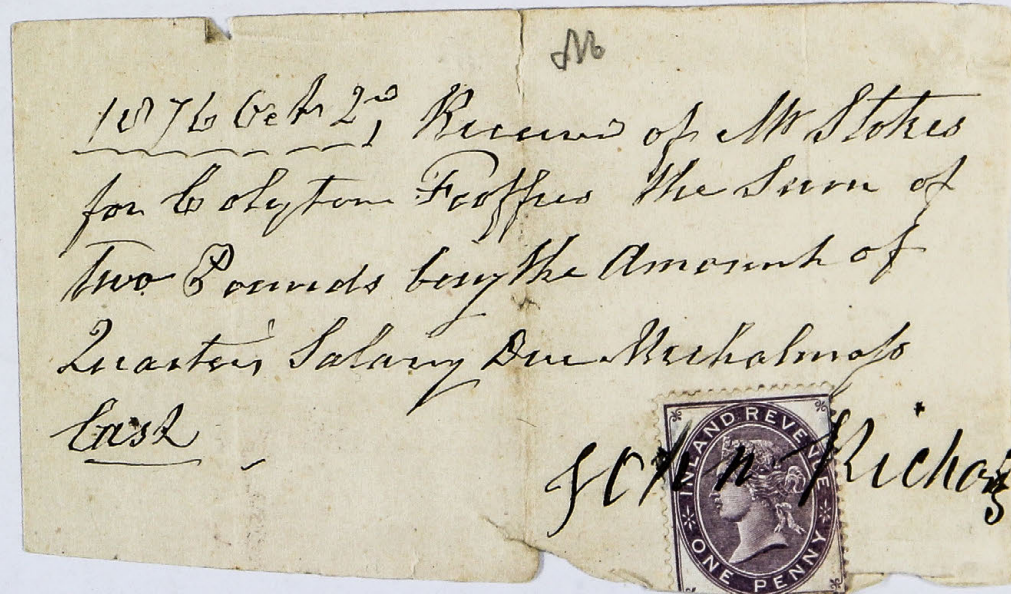 M
1876 Octr 2nd, Receivd of Mr Stokes
for Colyton Feoffees the Sum of
Two Pounds being the Amount of
Quarter's Salary Due Michalmass
Last
INLAND REVENUE
ONE PENNY
John Richards